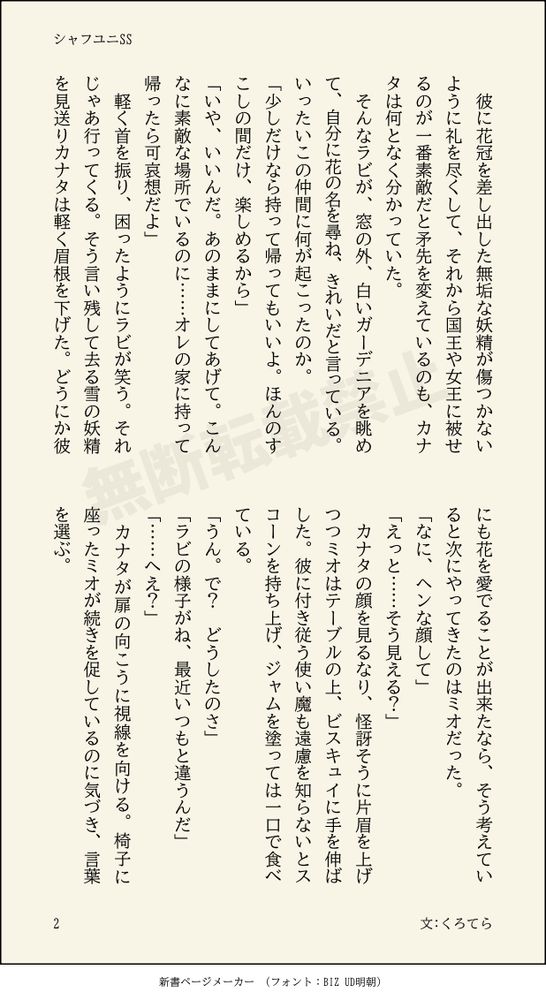 シャフユニSS
　彼に花冠を差し出した無垢な妖精が傷つかない
ように礼を尽くして、それから国王や女王に被せ
るのが一番素敵だと矛先を変えているのも、カナ
タは何となく分かっていた。
　そんなラビが、窓の外、白いガーデニアを眺め
て、自分に花の名を尋ね、きれいだと言っている。
いったいこの仲間に何が起こったのか。
「少しだけなら持って帰ってもいいよ。ほんのす
こしの間だけ、楽しめるから」
「いや、いいんだ。あのままにしてあげて。こん
なに素敵な場所でいるのに……オレの家に持って
帰ったら可哀想だよ」
　軽く首を振り、困ったようにラビが笑う。それ
じゃあ行ってくる。そう言い残して去る雪の妖精
を見送りカナタは軽く眉根を下げた。どうにか彼
にも花を愛でることが出来たなら、そう考えてい
ると次にやってきたのはミオだった。
「なに、ヘンな顔して」
「えっと……そう見える？」
　カナタの顔を見るなり、怪訝そうに片眉を上げ
つつミオはテーブルの上、ビスキュイに手を伸ば
した。彼に付き従う使い魔も遠慮を知らないとス
コーンを持ち上げ、ジャムを塗っては一口で食べ
ている。
「うん。で？　どうしたのさ」
「ラビの様子がね、最近いつもと違うんだ」
「……へえ？」
　カナタが扉の向こうに視線を向ける。椅子に
座ったミオが続きを促しているのに気づき、言葉
を選ぶ。
無断転載禁止
2
文:くろてら
新書ページメーカー　（フォント：BIZ UD明朝）